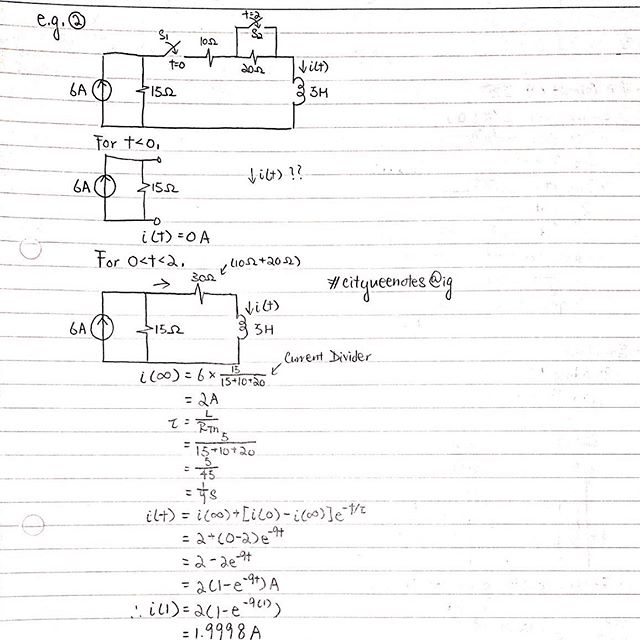 e.g. ②
S₁
t=0
10Ω
t=2
S₂
20Ω
↓i(t)
6A
15Ω
5H
For t<0,
6A
15Ω
↓i(t) ??
i(t) = 0A
For 0<t<2,
→
30Ω
(10Ω+20Ω)
#cityueenotes@ig
6A
15Ω
↓i(t)
5H
i(∞) = 6 × 15/(15+10+20)
Current Divider
= 2A
τ = L/R_Th
= 5/(15+10+20)
= 5/45
= 1/9 s
i(t) = i(∞)+[i(0)-i(∞)]e^(-t/τ)
= 2+(0-2)e^(-9t)
= 2-2e^(-9t)
= 2(1-e^(-9t))A
∴ i(1) = 2(1-e^(-9(1)))
= 1.9998A